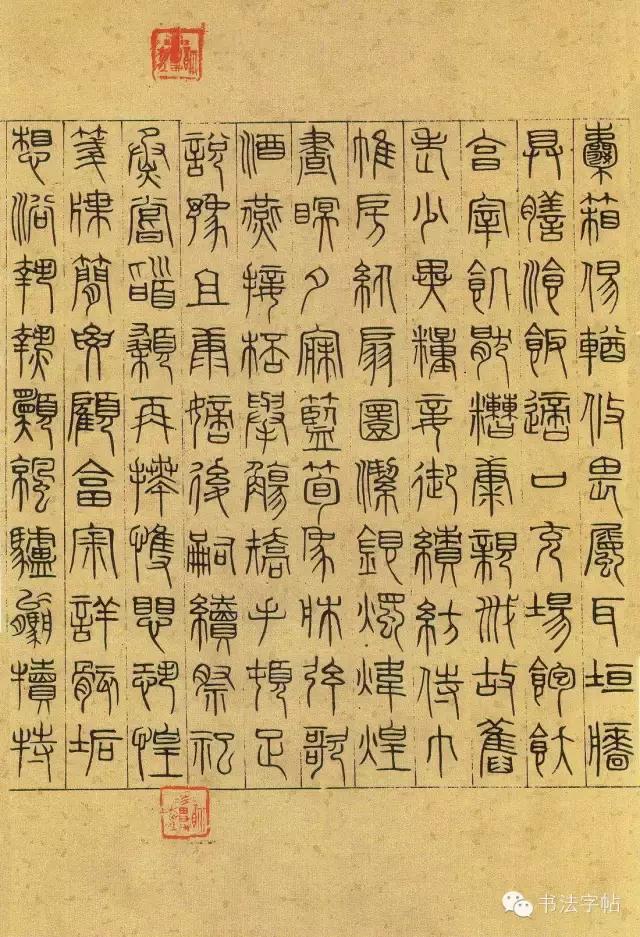 囊箱易輶攸畏屬耳垣牆
具膳飡飯適口充腸飽飫
烹宰飢厭糟糠親戚故舊
老少異糧妾御績紡侍巾
帷房紈扇圓潔銀燭煒煌
晝瞑夕寐籃筍象牀弦歌
酒燕接桮舉觴矯手頓足
說豫且康嫡後嗣續祭祀
烝嘗稽顙再拜悚懼恐惶
箋牒簡要顧畣審詳骸垢
想浴執熱願涼驢騾犢特
书法字帖